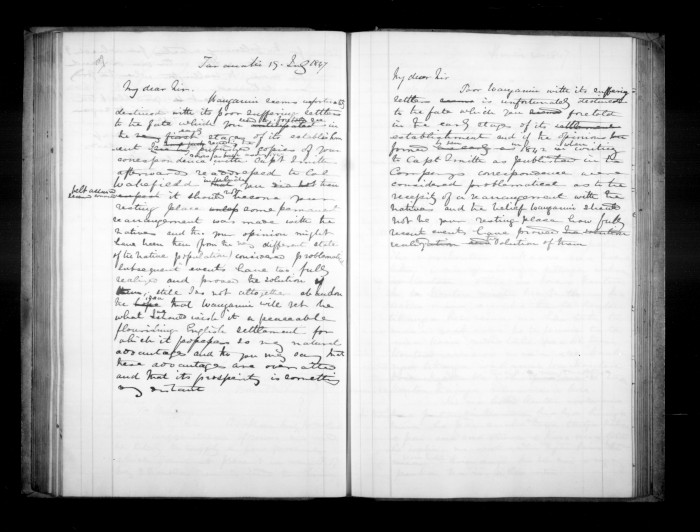 Taranaki 19. Aug 1847
My dear Sir.
Wanganui seems unfortunately
destined with its poor suffering settlers
to the fate which you in
the early stages of its establish
ment published copies of your
correspondence with Capt Smith
afterwards to Col
Wakefield you then
felt assured
it should become your
resting place some permanent
rearrangement was made with the
natives and tho' your opinion might
have been then (from the different state
of the native population) considered problematic,
subsequent events have too fully
realized and proved the solution of
them, still I do not altogether abandon
the hope that Wanganui will yet be
what I should wish it a peaceable
flourishing English settlement for
which it possesses so many natural
advantages and tho' you may say that
these advantages are overrated
and that its prosperity is something
My dear Sir
Poor Wanganui with its suffering
settlers is unfortunately destined
to the fate which you foretold
in the early stages of its settlement
establishment and if the opinions
formed in 1842 in writing
to Capt Smith as published in the
Companys correspondence were
considered problematical as to the
necessity of a rearrangement with the
natives and the belief Wanganui should
not be your resting place how fully
recent events have proved
solution of them